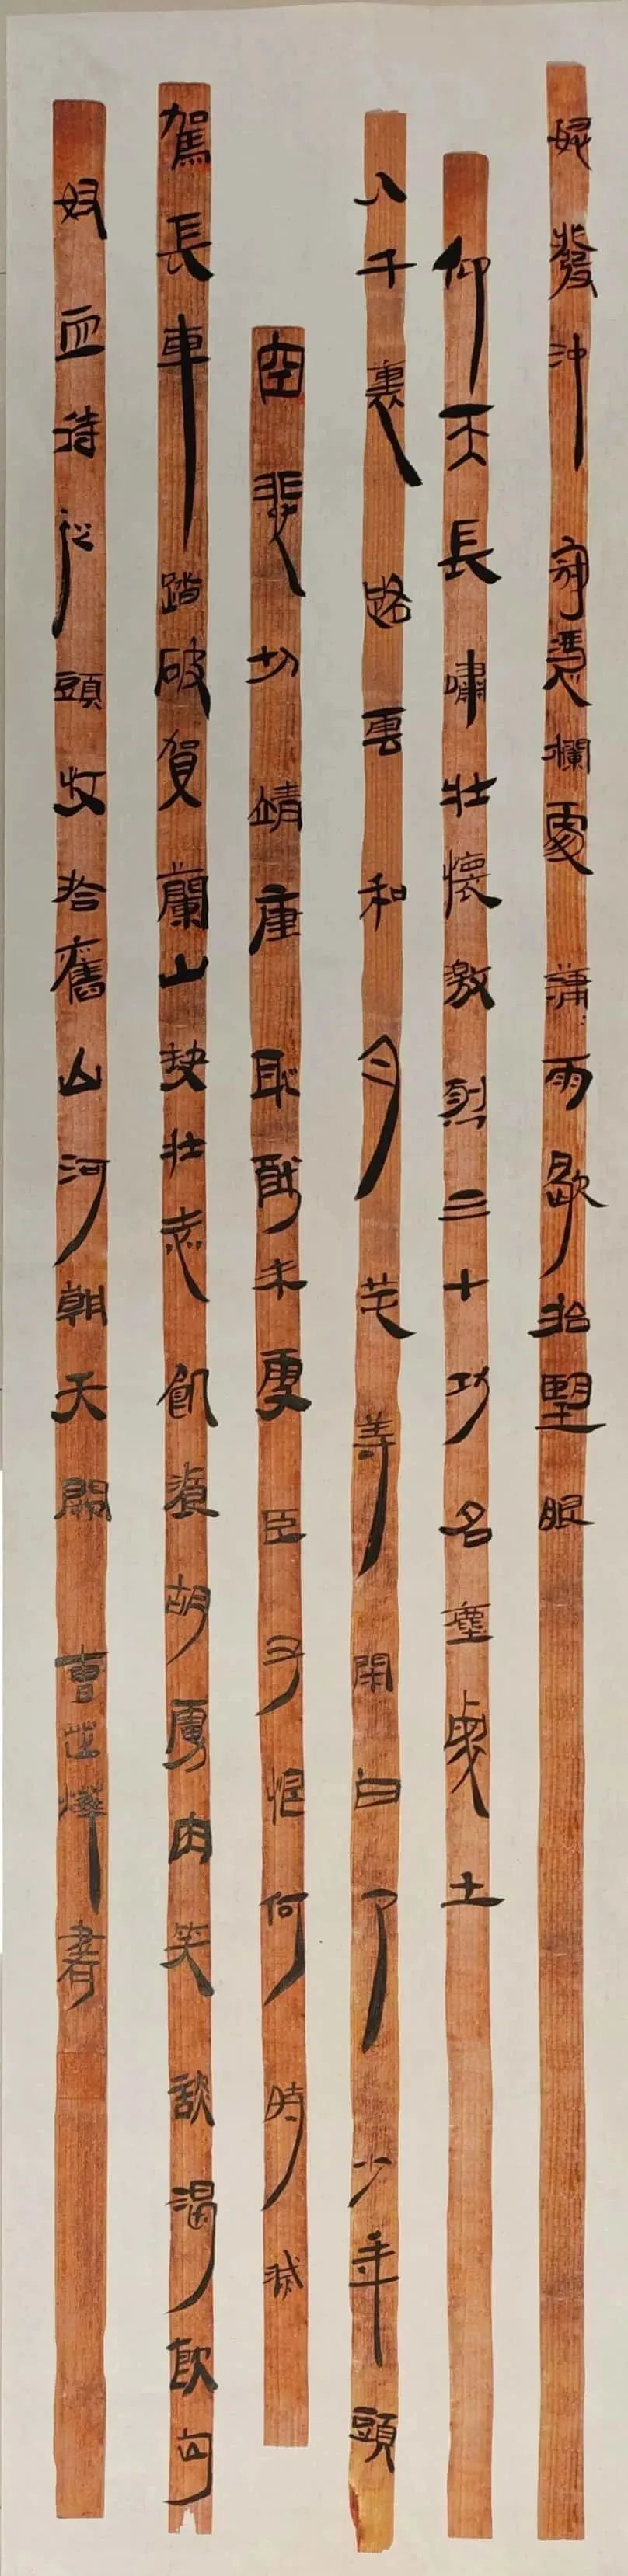 怒發沖冠憑欄處瀟雨歇抬望眼
仰天長嘯壯懷激烈三十功名塵與土
八千裏路雲和月莫等閑白了少年頭
空悲切靖康恥猶未雪臣子恨何時滅
駕長車踏破賀蘭山缺壯志飢餐胡虜肉笑談渴飲匈
奴血待從頭收拾舊山河朝天闕 曹芷燁書